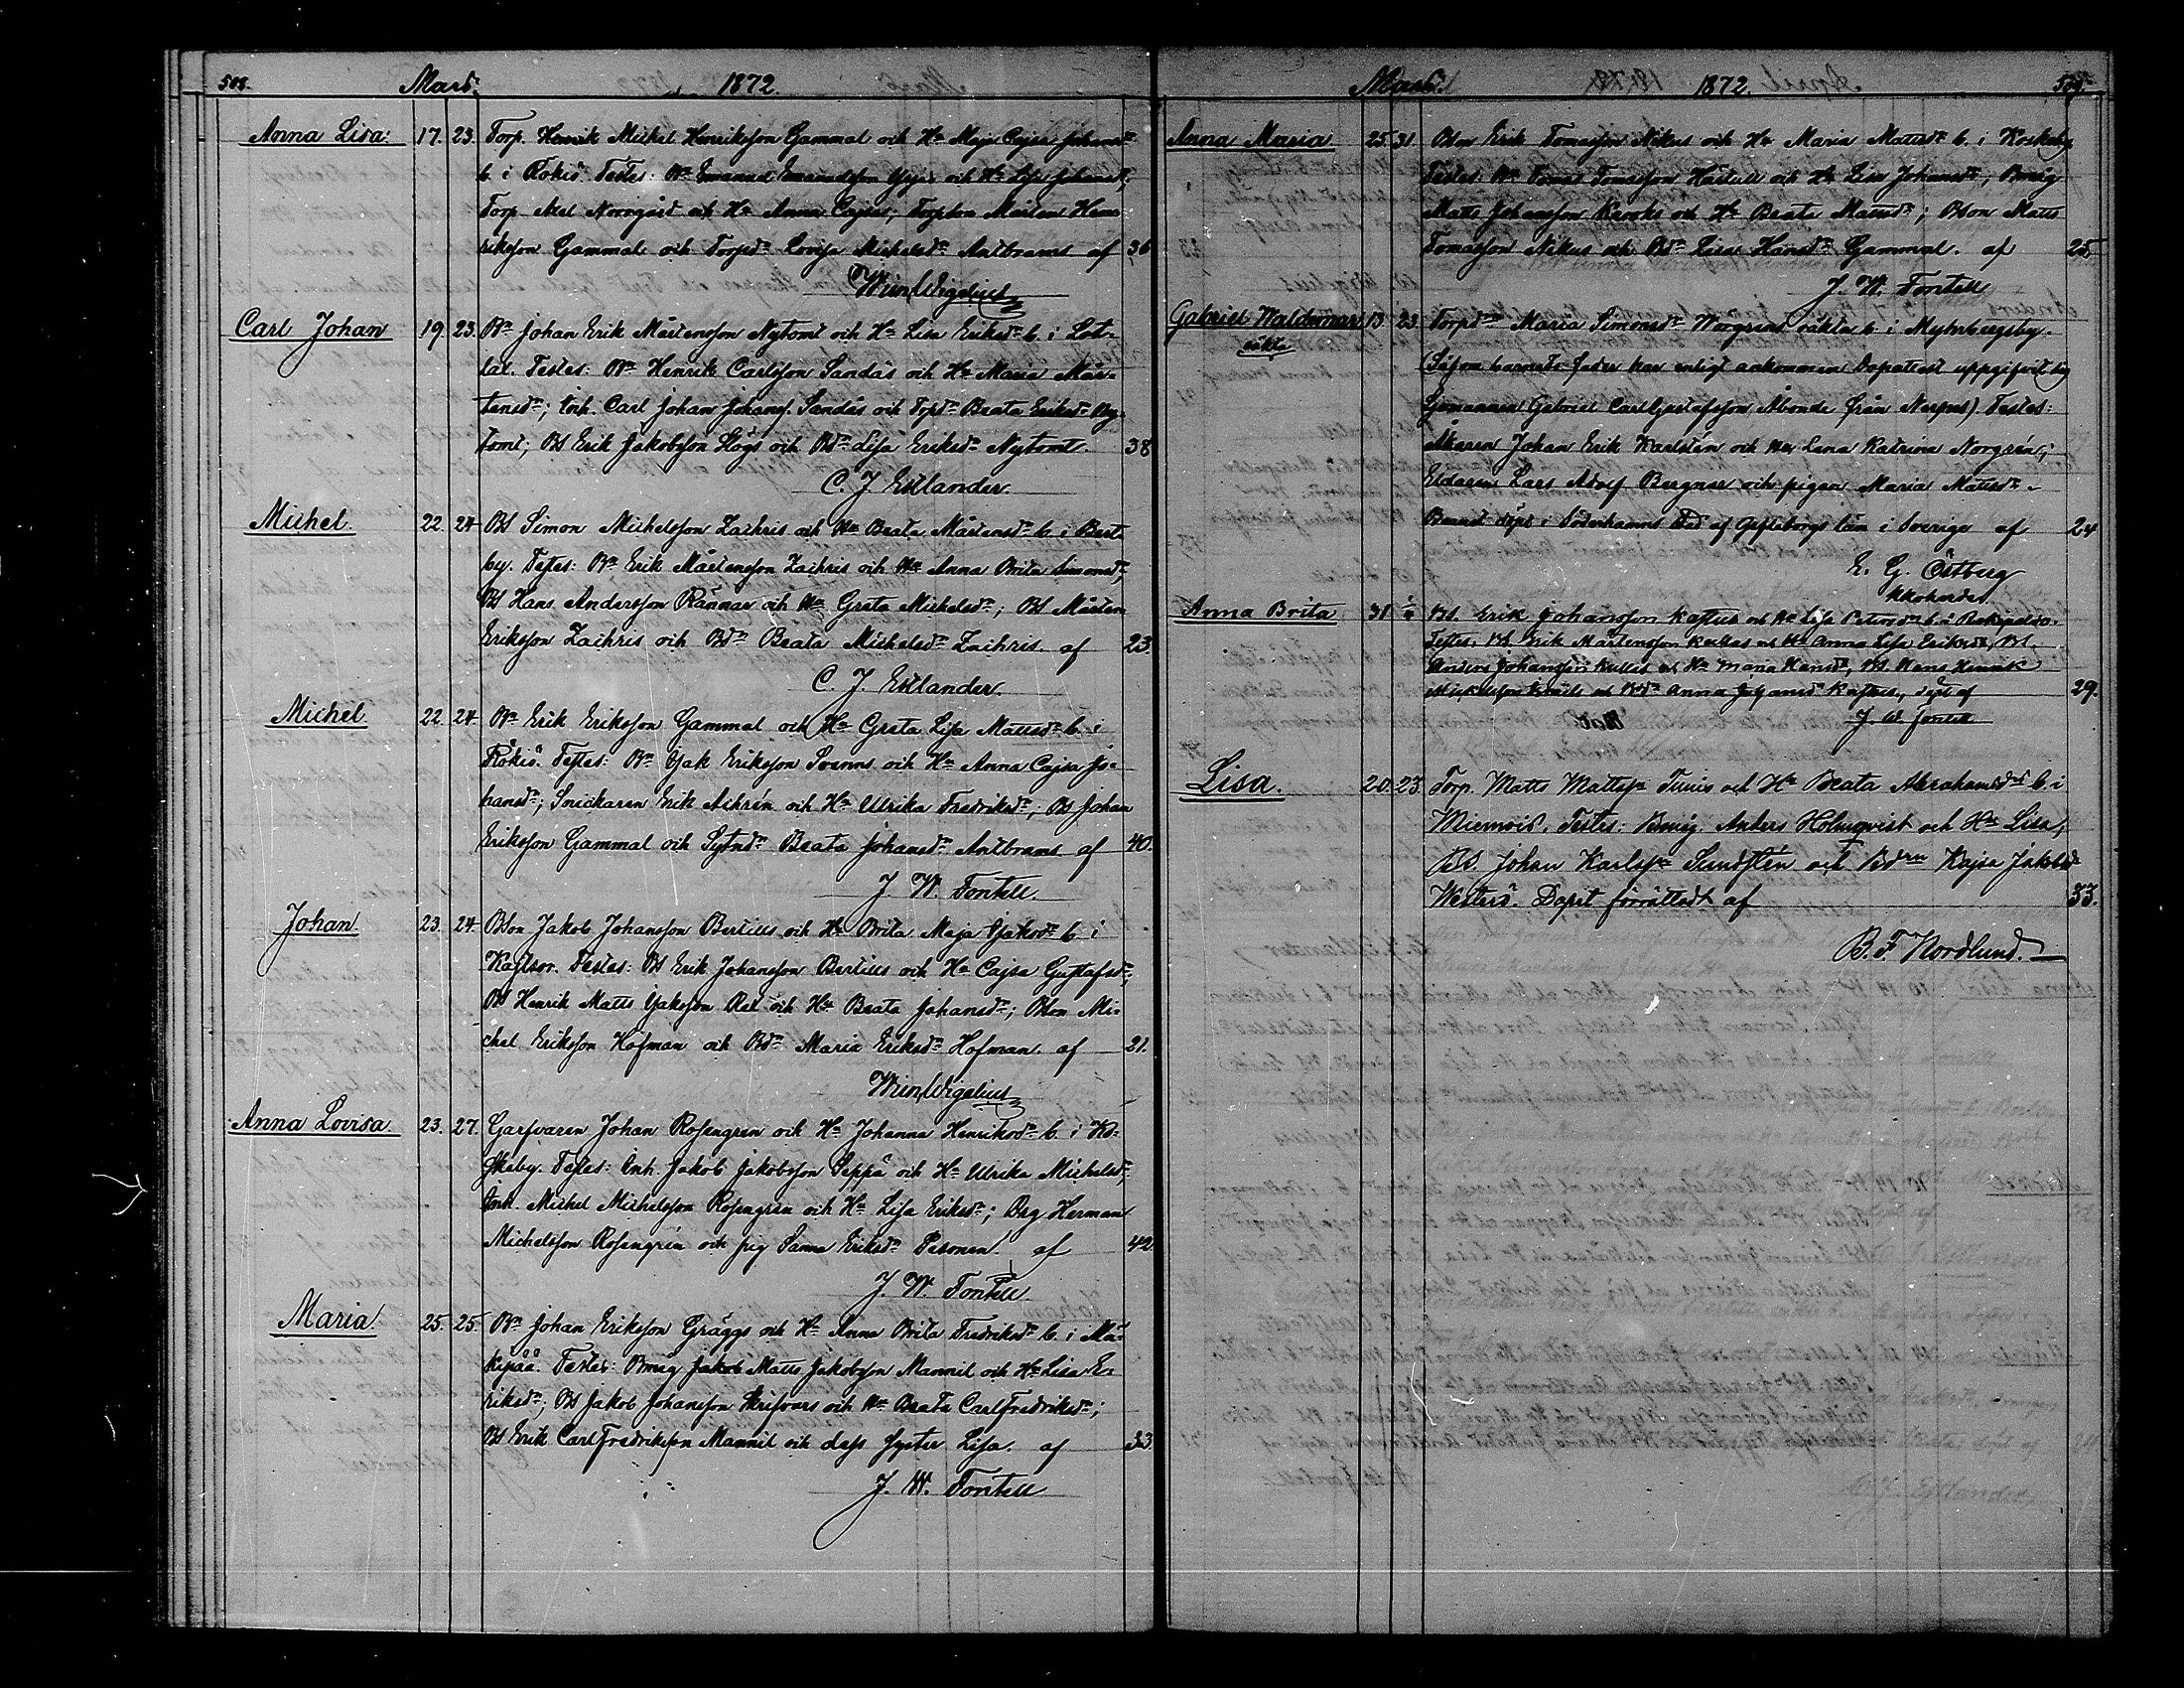 508. Mars. 1872.
Anna Lisa. 17. 23. Torp. Henrik Mickel Henriksson Gammal och Hu Maja Cajsa Johansdr
b. i Rökiö. Testes: Bn Emanuel Emanuelsson och Hu Lisa Johansdr,
Torp Axel Norrgård och Hu Anna Cajsa; Torpson Mårten Hen-
riksson Gammal och Torpdr Lovisa Mickelsdr Antbrams af 36
Wigelius
Carl Johan 19. 23. Bn Johan Erik Mårtensson Nytomt och Hu Lisa Eriksdr b. i Lot-
lax. Testes: Bn Henrik Carlsson Sandås och Hu Maria Mår-
tensdr; Inh. Carl Johan Johanss. Sandås och Torpdr Beata Eriksdr Ny-
tomt; Bs Erik Jakobsson Högs och Bdr Lisa Eriksdr Nytomt. 38
C. J. Estlander.
Michel. 22. 24 Bs Simon Michelsson Zachris och Hu Beata Mårtensdr b. i Bert-
by. Testes: Bn Erik Mårtensson Zachris och Hu Anna Brita Simonsdr,
Bs Hans Andersson Rännar och Hu Greta Michelsdr; Bs Mårten
Eriksson Zachris och Bdr Beata Michelsdr Zachris. af 23.
C. J. Estlander.
Michel. 22. 24. Bn Erik Eriksson Gammal och Hu Greta Lisa Mattsdr b. i
Rökiö. Testes: Bn Isak Eriksson Svenns och Hu Anna Cajsa Jo-
hansdr; Snickaren Erik Achrén och Hu Ulrika Fredriksdr; Bs Johan
Eriksson Gammal och Sytndr Beata Johansdr Antbrams af 40.
J. W. Fontell.
Johan. 23. 24. Bson Jakob Johansson Bertills och Hu Brita Maja Isaksdr b. i
Kaitsor. Testes: Bs Erik Johansson Bertills och Hu Cajsa Gustafsdr;
Bs Henrik Matts Isaksson och Hu Beata Johansdr; Bson Mi-
chel Eriksson Hofman och Bdr Maria Eriksdr Hofman. af 21.
Wigelius
Anna Lovisa. 23. 27. Garfvaren Johan Rosengren och Hu Johanna Henriksdr b. i Ko-
skeby. Testes: Inh. Jakob Jakobsson Seppä och Hu Ulrika Michelsdr,
Inh. Michel Michelsson Rosengrén och Hu Lisa Eriksdr; Drg Herman
Michelsson Rosengrén och pig Sanna Eriksdr Pesonen. af 42
J. W. Fontell
Maria. 25. 25. Bn Johan Eriksson Gräggs och Hu Anna Brita Fredriksdr b. i Mä-
kipää. Testes: Bmåg Jakob Matts Jakobsson Mannil och Hu Lisa E-
riksdr; Bs Jakob Johansson Skrifvars och Hu Beata CarlFredriksdr;
Bs Erik CarlFredriksson Mannil och dess syster Lisa. af 33.
J. W. Fontell
Mars. 1872. 509.
Anna Maria 25. 31. Bson Erik Tomasson Nikus och Hu Maria Mattsdr b. i Koskeby
Testes: Bn Tomas Tomasson och Hu Lisa Johansdr; Bmåg
Matts Johansson Krooks och Hu Beata Mattsdr; Bson Matts
Tomasson Nikus och Bdr Lisa Hansdr Gammal. af 25
J. W. Fontell
Gabriel Waldemar 13 23. Torpdrn Maria Simonsdr Wargrens oäkta b. i
oäkta
(Såsom barnets fader har enligt ankommen Dopattest uppgifvit sig
Sjömannen Gabriel CarlGustafsson Åbonde från Nerpes) Testes:
Åkaren Johan Erik Karlstén och Hu Lena Katrina Norgrén;
Eldaren Lars Adolf Bergner och pigan Maria Mattsdr.
Barnet döpt i Söderhamns stad af Gefleborgs län i Sverige af 24
E. G. Östberg
Kkoherde.
Anna Brita 31 Bs. Erik Johansson Kaftus och Hu Lisa Petersdr b. i
Testes, Bs. Erik Mårtensson Kullas och Hu Anna Lisa Eriksdr, Bs.
Anders Johansson Kullas och Hu Maria Hansdr, Bs. Hans Henrik
och Bdr Anna Johansdr Kaftus, döpt af 29.
J. W. Fontell
Lisa. 20. 23. Torp. Matts Mattsson Tunis och Hu Beata Abrahamsdr b. i
Miemois. Testes: Bmåg. Anders Holmqvist och Hu Lisa,
Bs. Johan Karlsson Sundstén och Bdrn Kajsa Jakobsdr
Westerö. Dopet förrättadt af 33.
B. F. Nordlund.